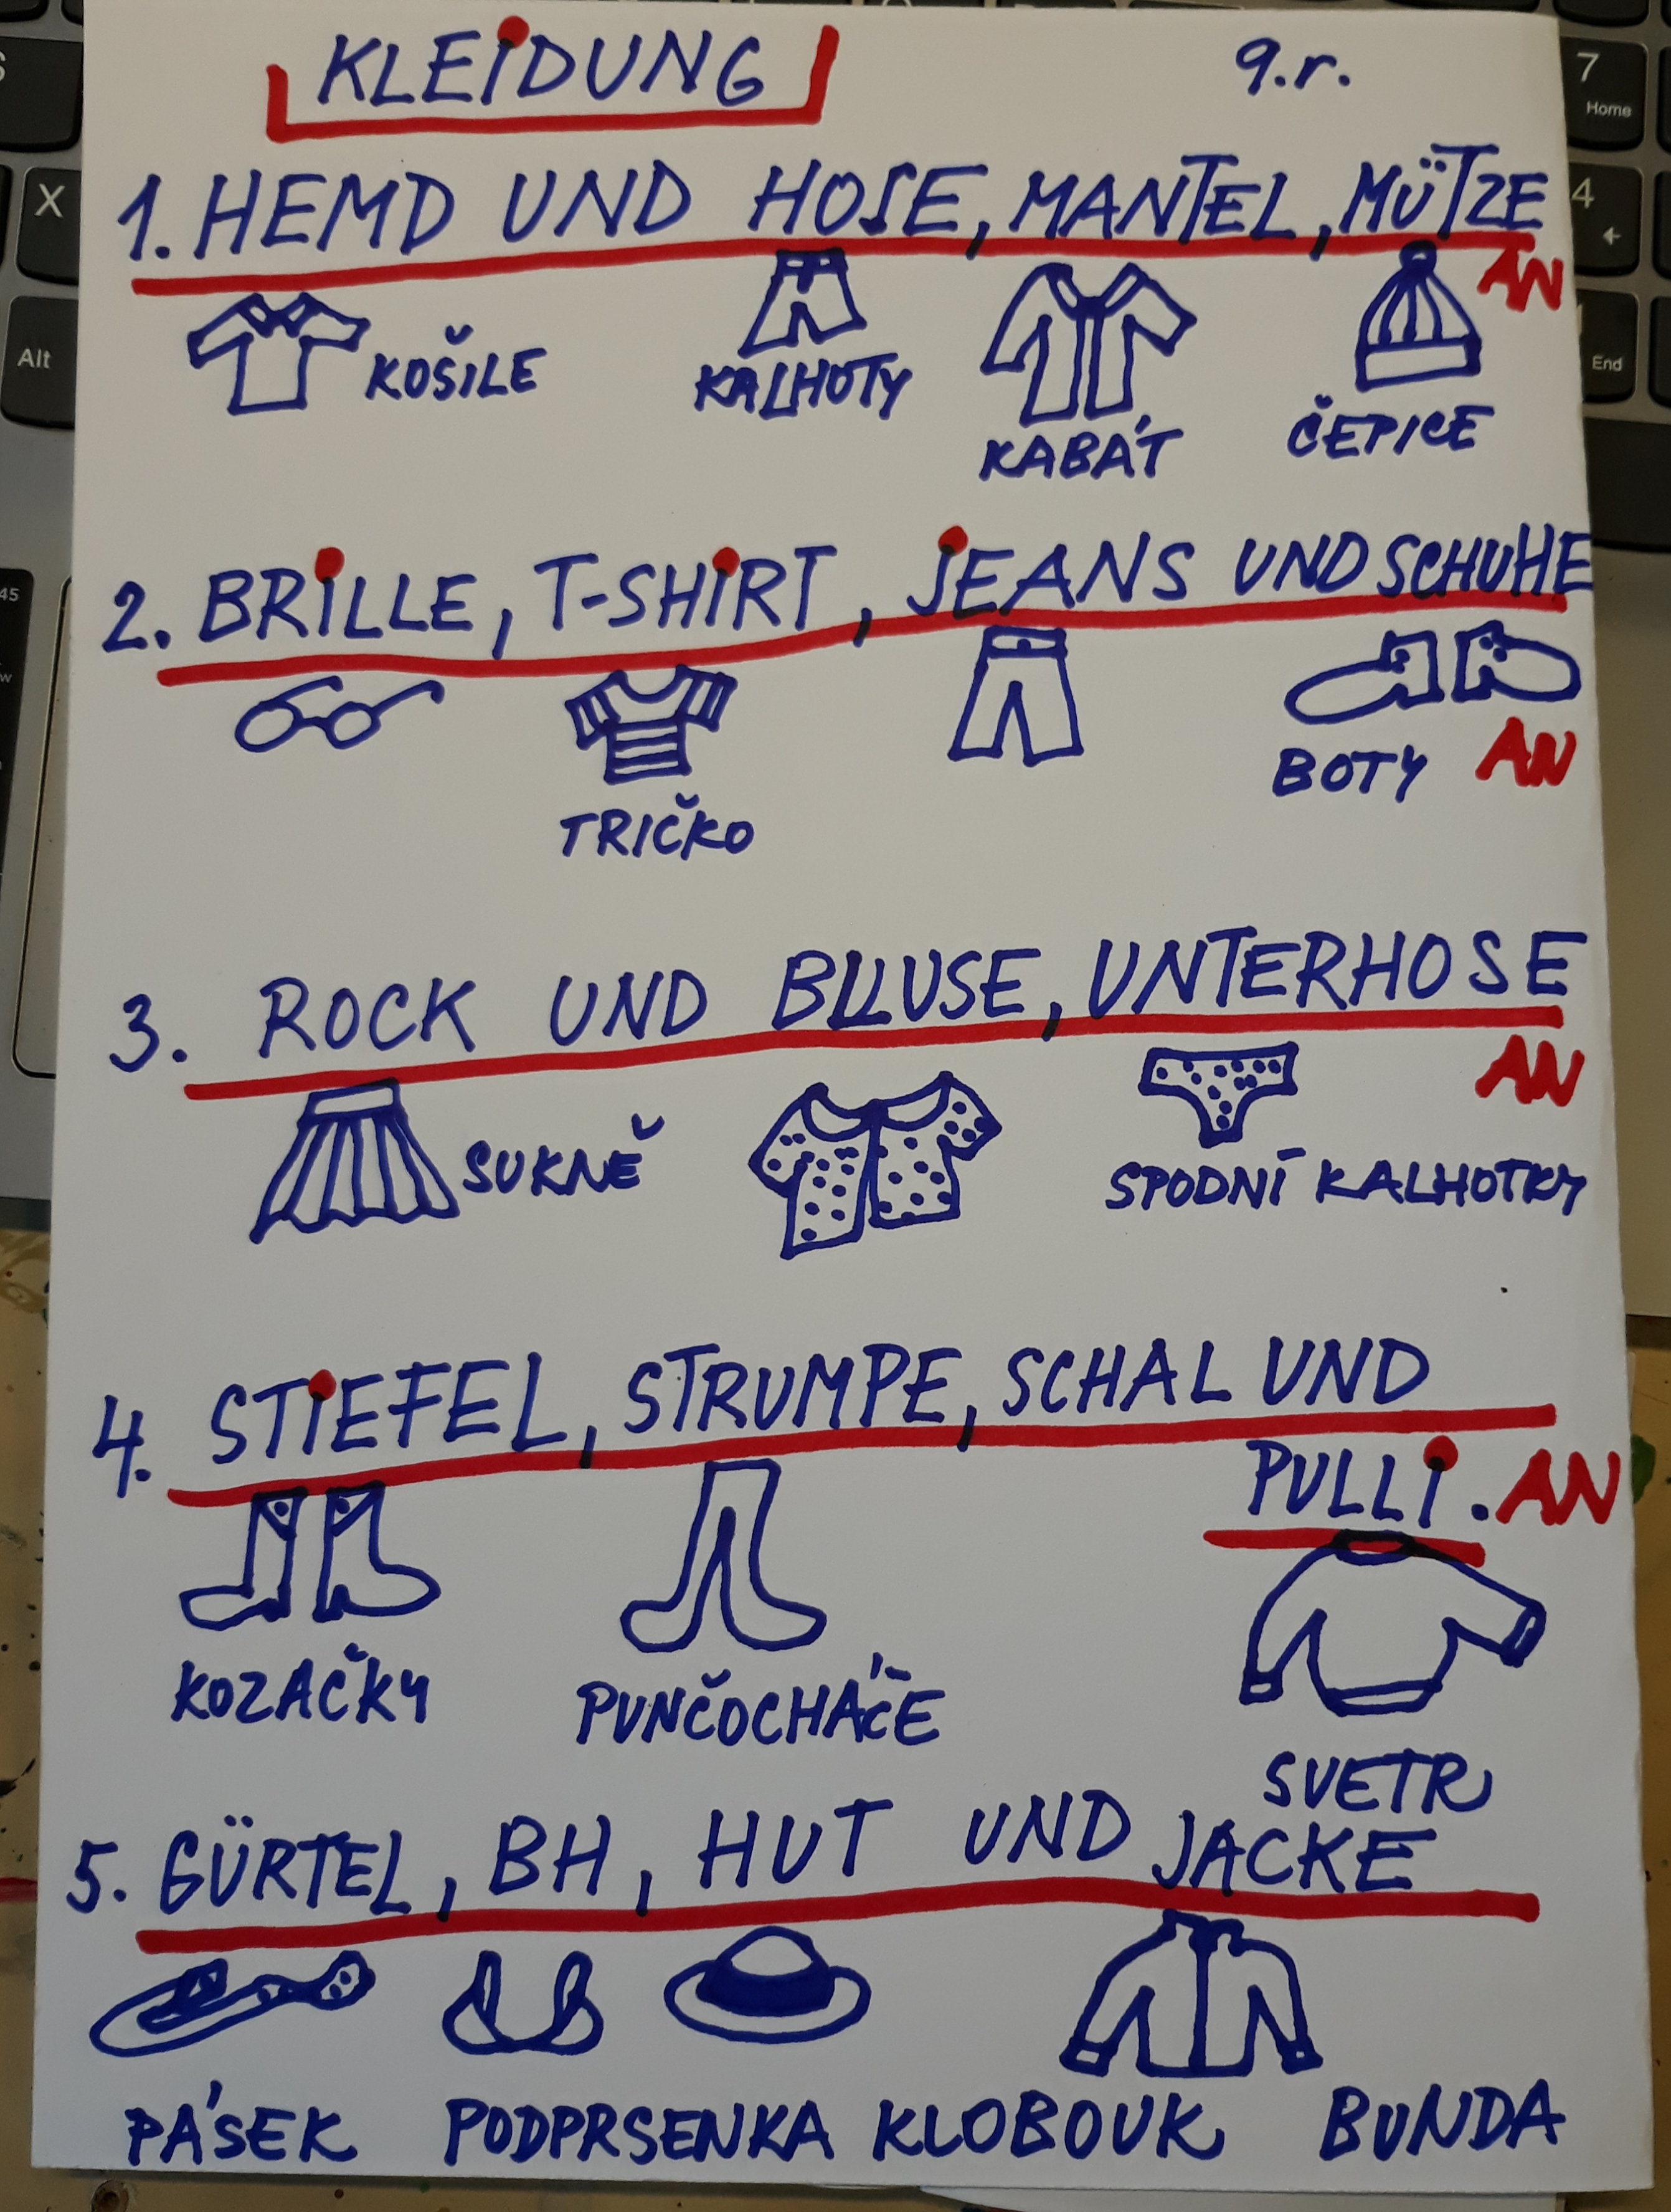 KLEiDUNG 9.r.
1. HEMD UND HOSE, MANTEL, MÜTZE
AN
KOŠILE KALHOTY KABÁT ČEPICE
2. BRiLLE, T-SHiRT, jEANS UND SCHUHE
BOTY AN
TRIČKO
3. ROCK UND BLLUSE, UNTERHOSE
AN
SUKNĚ SPODNÍ KALHOTKY
4. STiEFEL, STRUMPE, SCHAL UND
PULLi. AN
KOZAČKY PUNČOCHÁČE
SVETR
5. GÜRTEL, BH, HUT UND JACKE
PÁSEK PODPRSENKA KLOBOUK BUNDA
X
Alt
45
7
Home
4
End